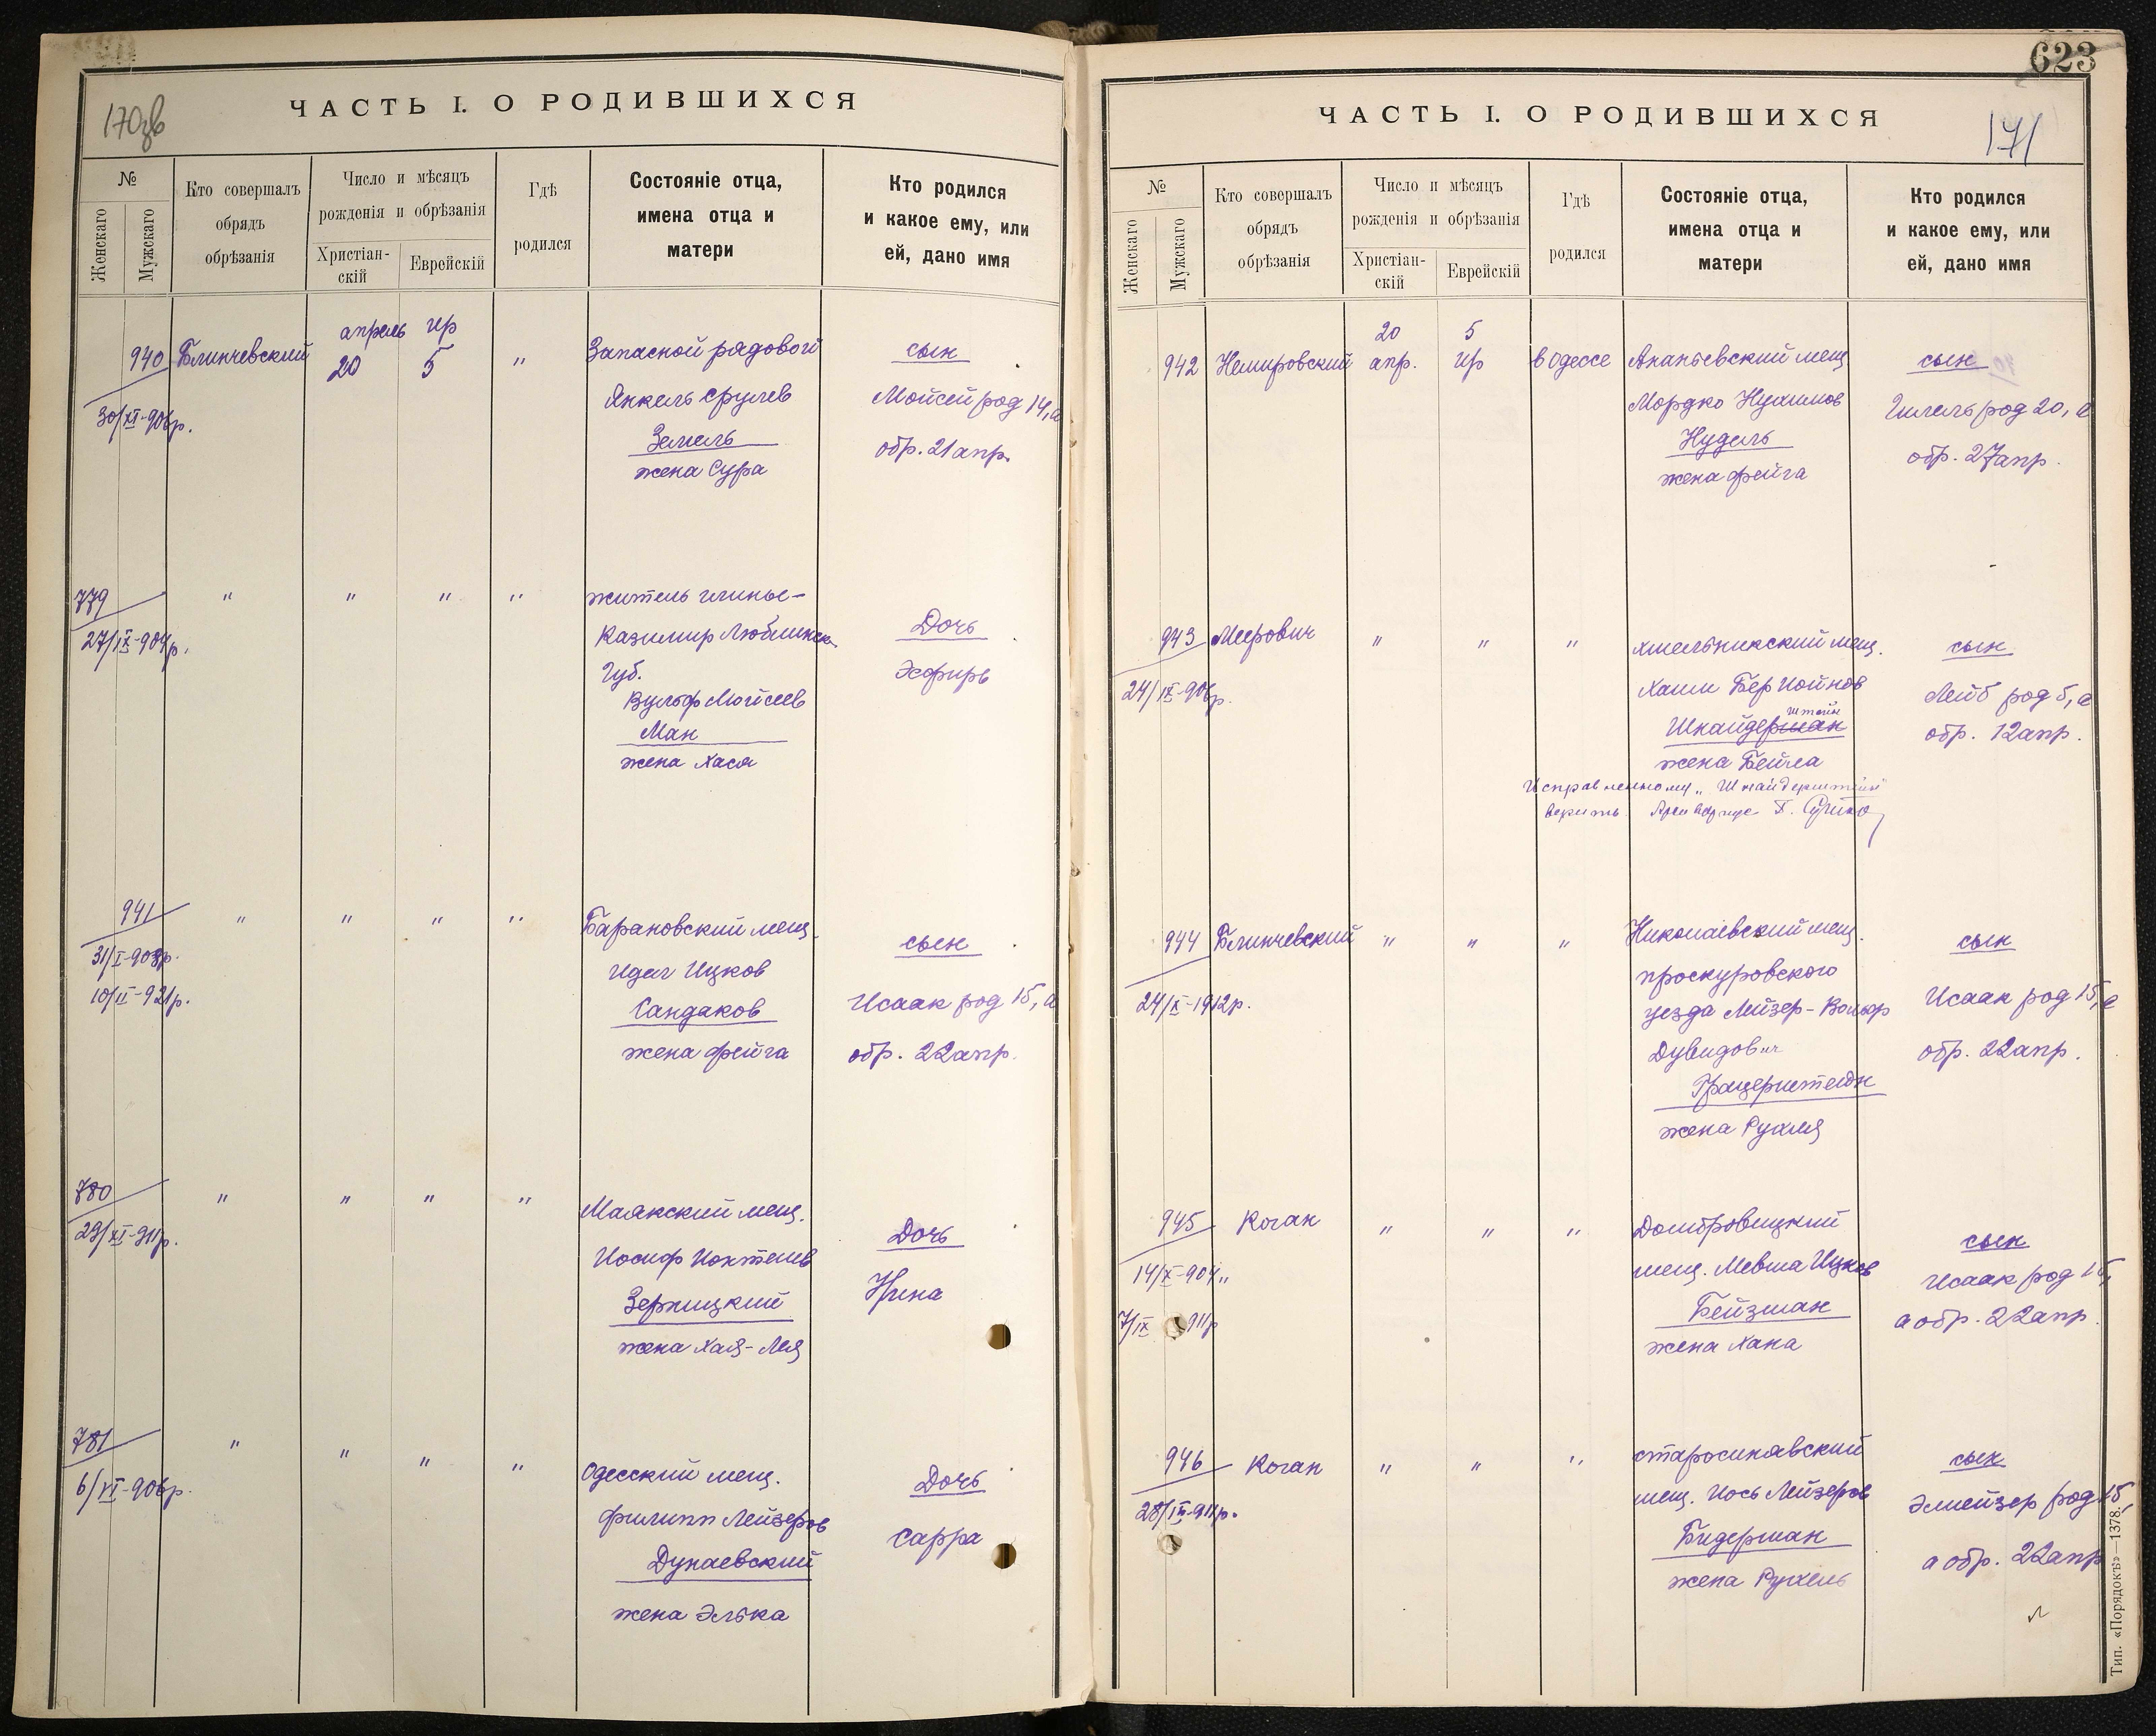 ЧАСТЬ I. О РОДИВШИХСЯ
№
Женскаго
Мужскаго
Кто совершалъ
обрядъ
обрѣзанія
Число и мѣсяцъ
рожденія и обрѣзанія
Христіан-
скій
Еврейскій
Гдѣ
родился
Состояніе отца,
имена отца и
матери
Кто родился
и какое ему, или
ей, дано имя
940
30/XI-906р.
Блинчевский
апрель
20
ир
5
"
Запасной рядовой
Янкель Срулев
Зегмель
жена Сура
сын
Мойсей род 14, а
обр. 21 апр.
779
27/IX-904р.
" " " "
житель
Казимир Люблинск.
Губ.
Вульф Мойсеев
Ман
жена Хася
Дочь
Эсфирь
941
31/I-903р.
10/II-921р.
" " " "
Барановский мещ.
Идел Ицков
Сандаков
жена Фейга
сын
Исаак род 15, а
обр. 22 апр.
780
29/XI-911р.
" " " "
Маякский мещ.
Иосиф
Зерницкий
жена Хая-Лея
Дочь
Нина
781
6/VI-906р.
" " " "
Одесский мещ.
Филипп Лейзеров
Дунаевский
жена Элька
Дочь
Сарра
623
171
ЧАСТЬ I. О РОДИВШИХСЯ
№
Женскаго
Мужскаго
Кто совершалъ
обрядъ
обрѣзанія
Число и мѣсяцъ
рожденія и обрѣзанія
Христіан-
скій
Еврейскій
Гдѣ
родился
Состояніе отца,
имена отца и
матери
Кто родился
и какое ему, или
ей, дано имя
942
Немировский
20
апр.
5
ир
в Одессе
Ананьевский мещ
Мордко Нухимов
Нудель
жена Фейга
сын
Гилель род 20, а
обр. 27 апр.
943
24/IX-906р.
Меерович
" " "
Хмельникский мещ.
Хаим Бер Иойнов
штейн
Шнайдерман
жена Бейла
Исправленному „Шнайдерштейн"
верить.
сын
Лейб род 5, а
обр. 12 апр.
944
24/X-1912р.
Блинчевский
" " "
Николаевский мещ.
проскуровского
уезда Лейзер-Вольф
Дувидович
Грацерштейн
жена Рухля
сын
Исаак род 15, а
обр. 22 апр.
945
14/X-904 "
7/IX 911р
Коган
" " "
Домбровицкий
мещ. Мевша Ицков
Бейзман
жена Хана
сын
Исаак род 15,
а обр. 22 апр.
946
Коган
" " "
старосинявский
мещ. Иось Лейзеров
Бидерман
жена Рухель
сын
Элиейзер род 15,
а обр. 22 апр
Тип. «Порядокъ»—1378.